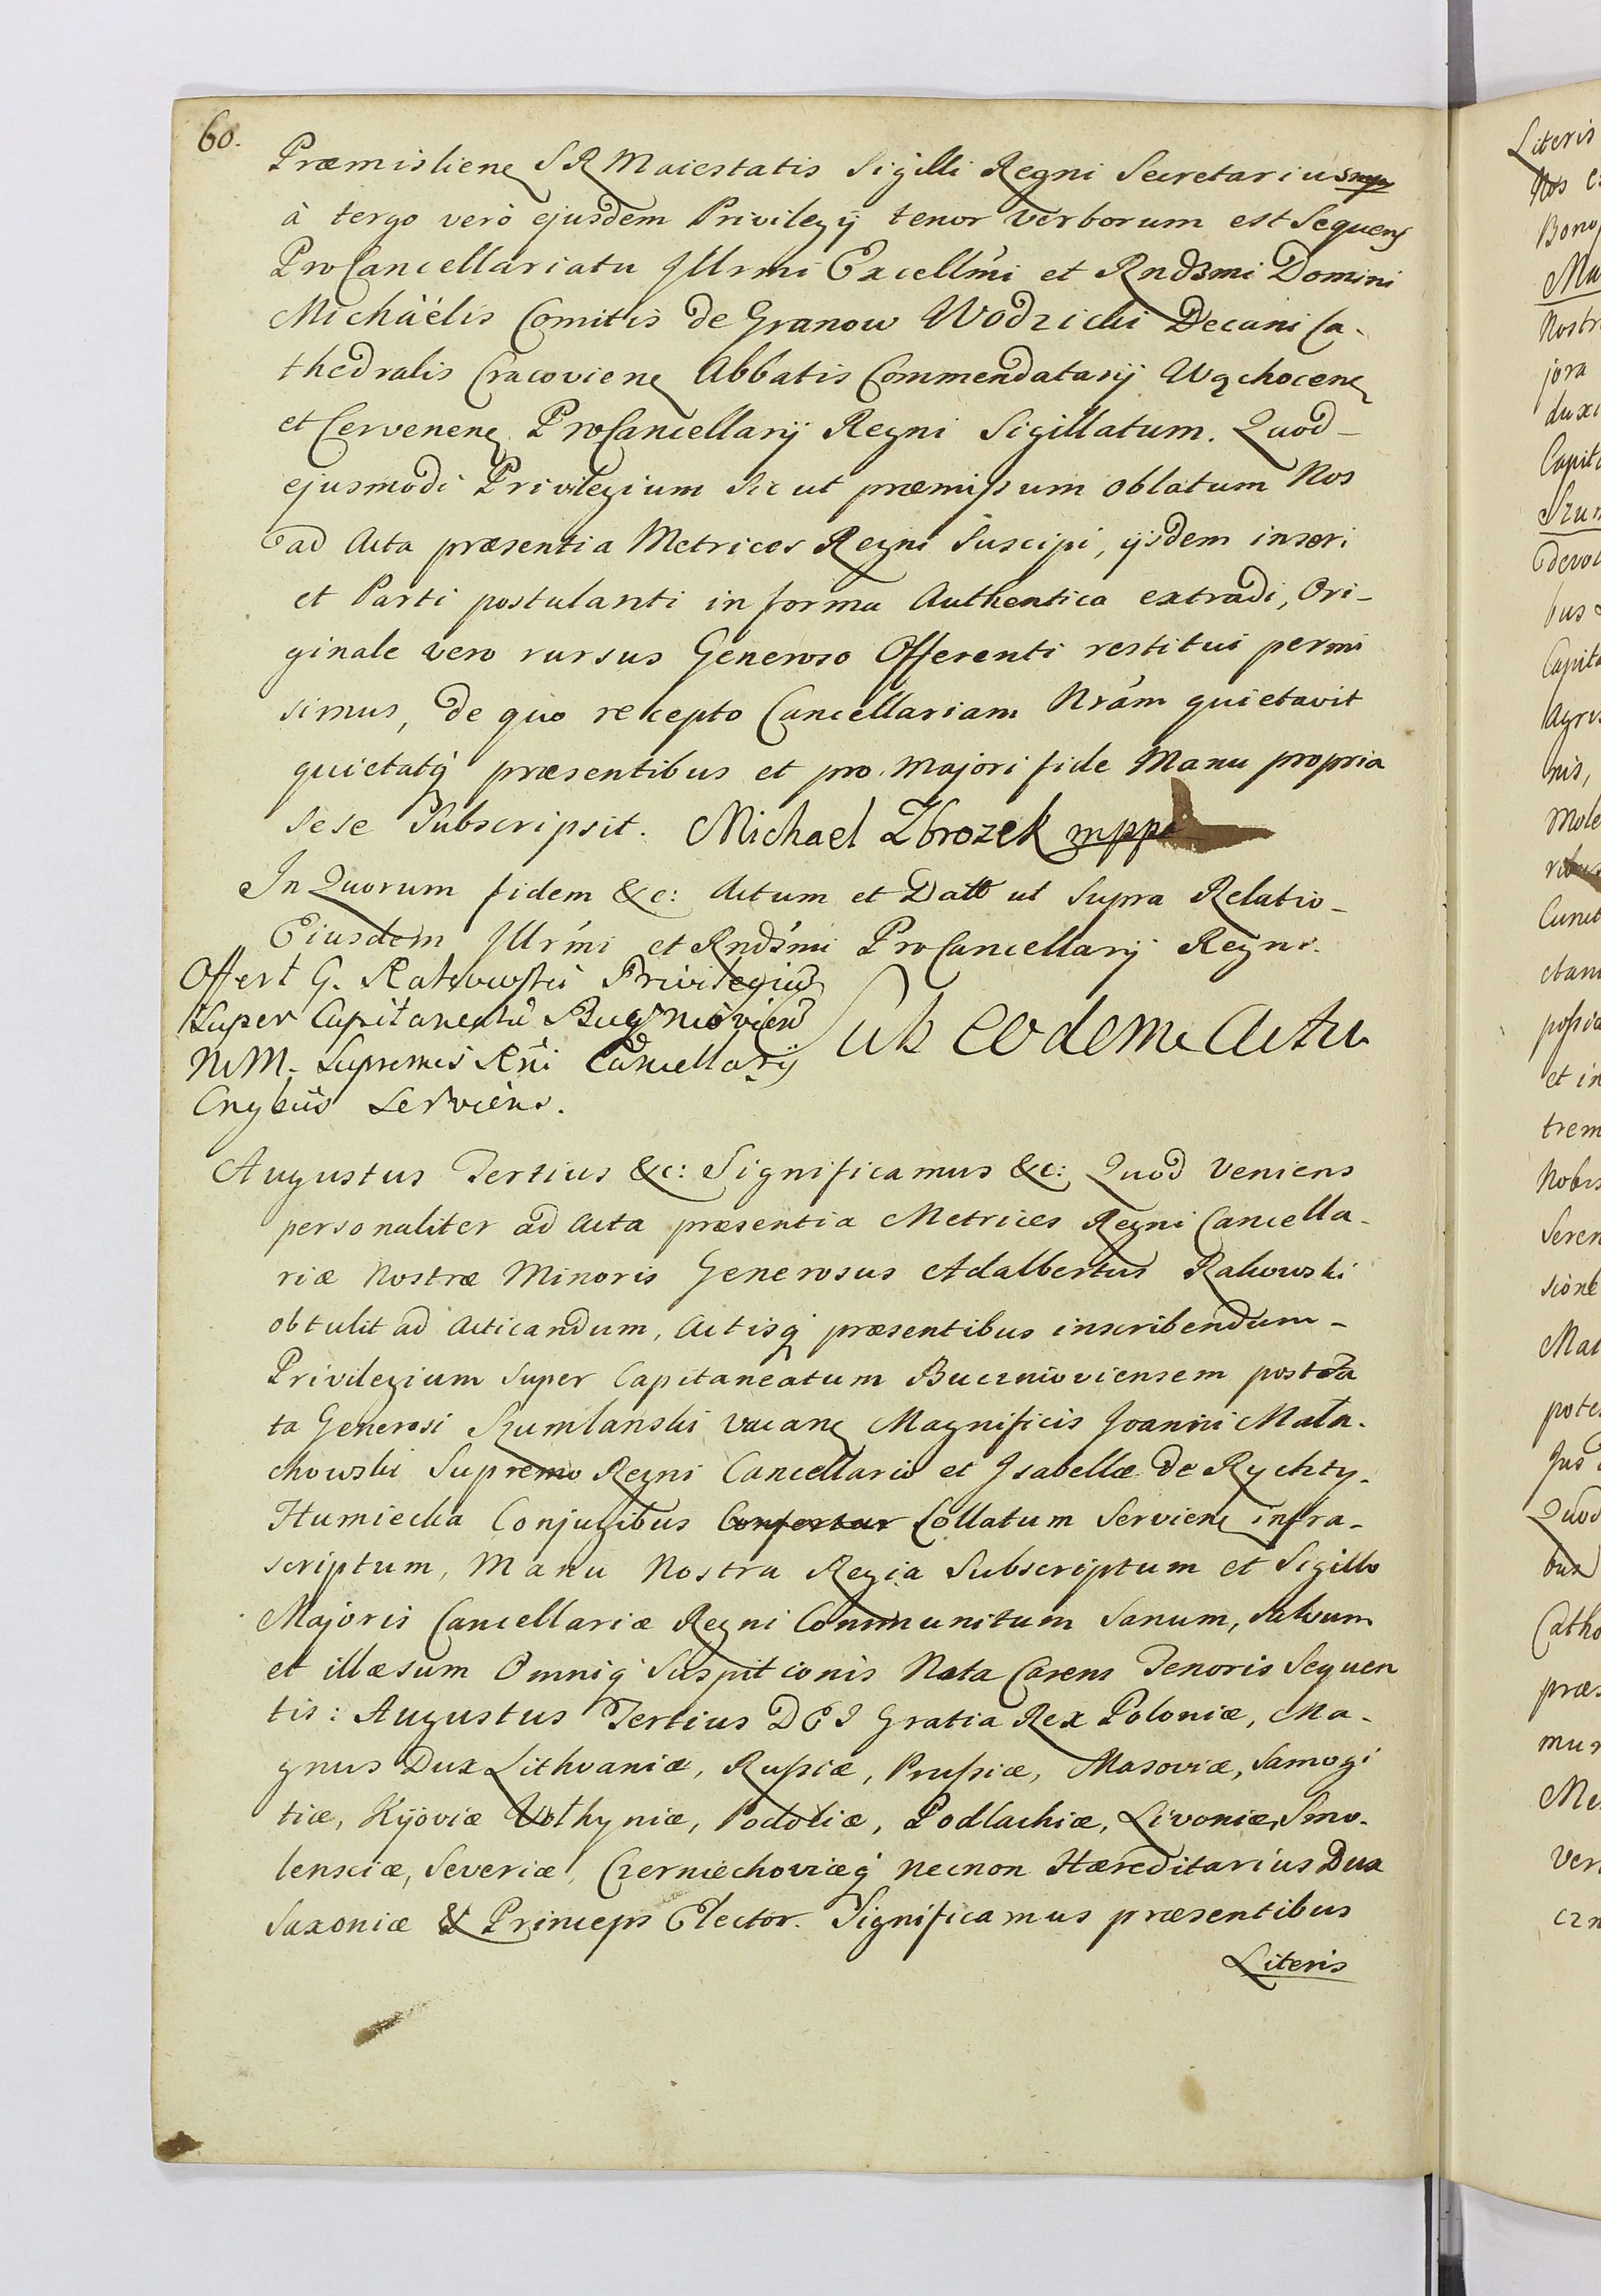 60.
Præmisliens S R Maiestatis Sigilli Regni Secretarius mp
à tergo verò ejusdem Privilegij tenor verborum est Sequens
ProCancellariatu Jllrmi Excellmi et Rndsmi Domini
Michäélis Comitis de Granow Wodzicki Decani Ca-
thedralis Cracoviens Abbatis Commendatarij Wąchocens
et Cervenens ProCancellarij Regni Sigillatum. Quod-
ejusmodi Privilegium sic ut præmissum oblatum Nos
ad Acta præsentia Metrices Regni suscipi, ijsdem inseri
et Parti postulanti in forma Authentica extradi, Ori-
ginale vero rursus Generoso Offerenti restitui permi
simus, de quo recepto Cancellariam Nrám quietavit
quietatq́ præsentibus et pro majori fide Manu propria
sese Subscripsit. Michael Zbrozek mppa
In Quorum fidem &c: Actum et Datt ut Supra Relatio-
Eiusdem Jllrḿi et Rndśmi ProCancellarij Regni.
Offert G. Rakowski Privilegium
super Capitaneatū Bucznioviens
MM. Supremis Rni Cancellarij
Cngbus Serviens.
Sub eodem Actu
Augustus Tertius &c: Significamus &c: Quod Veniens
personaliter ad Acta præsentia Metrices Regni Cancella-
riæ Nostræ Minoris Generosus Adalbertus Rakowski
obtulit ad Acticandum, Actisq́ præsentibus inscribendum-
Privilegium Super Capitaneatum Buczniowiensem post Fa
ta Generosi Szumlanski vacans Magnificis Joanni Mała-
chowski Supremo Regni Cancellario et Jsabellæ de Rychty-
Humiecka Conjugibus Confertur Collatum Serviens infra-
scriptum, Manu Nostra Regia Subscriptum et Sigillo
Majoris Cancellariæ Regni Communitum Sanum, Salvum
et illæsum Omniq́ Suspitionis Nota Carens Tenoris Sequen
tis: Augustus Tertius DEI Gratia Rex Poloniæ, Ma-
gnus Dux Lithvaniæ, Russiæ, Prussiæ, Masoviæ, Samogi
tiæ, Kijoviæ Volhyniæ, Podoliæ, Podlachiæ, Livoniæ, Smo-
lensciæ, Severiæ, Czerniechoviæq́ necnon Hæreditarius Dux
Saxoniæ & Princeps Elector. Significamus præsentibus
Literis